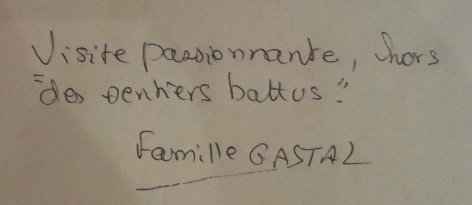 Visite passionnante, hors
"des sentiers battus".
Famille GASTAL